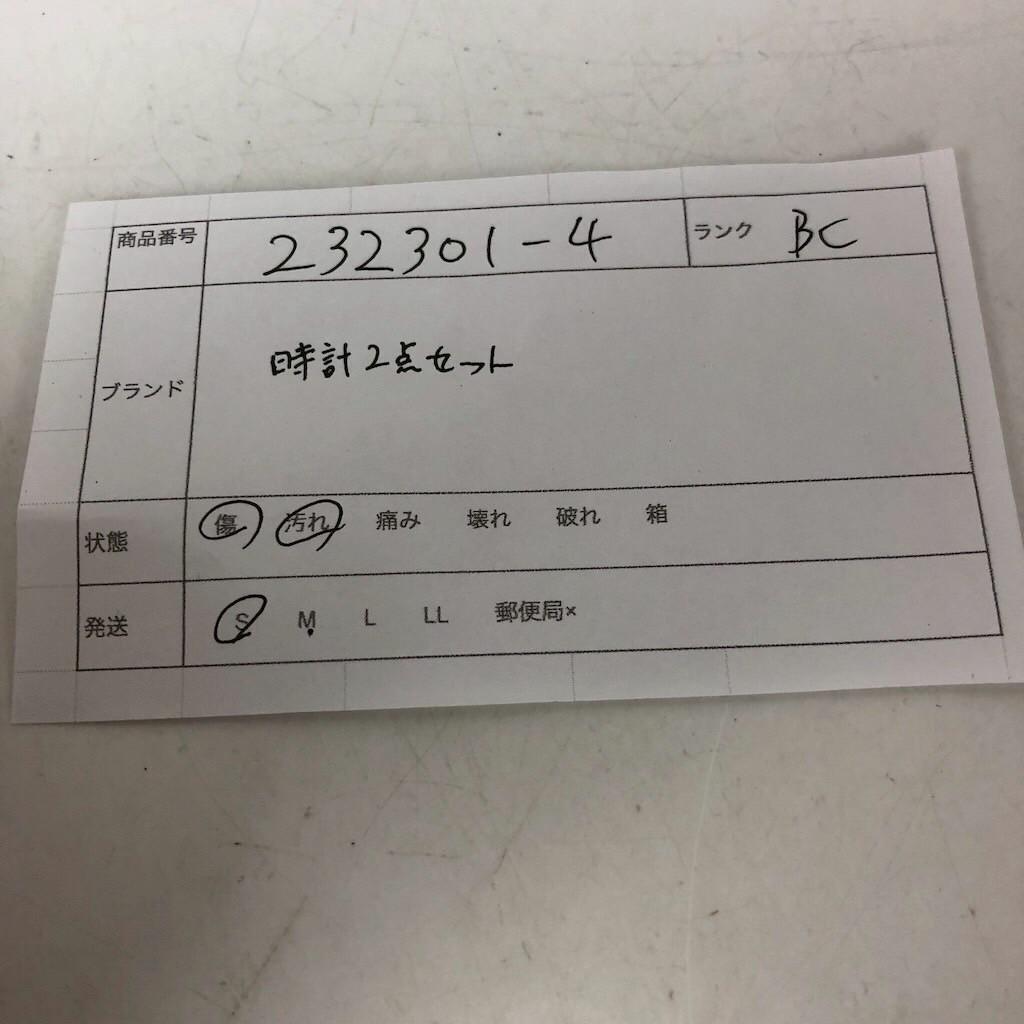 商品番号 232301-4 ランク BC
ブランド 時計2点セット
状態 傷 汚れ 痛み 壊れ 破れ 箱
発送 S M L LL 郵便局×